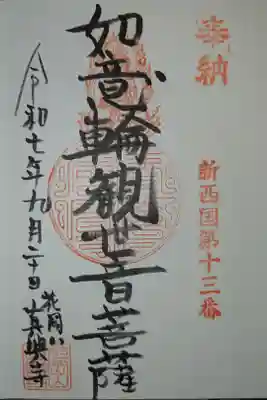 奉納
新西国第十三番
如意輪観世音菩薩
令和七年九月二十日